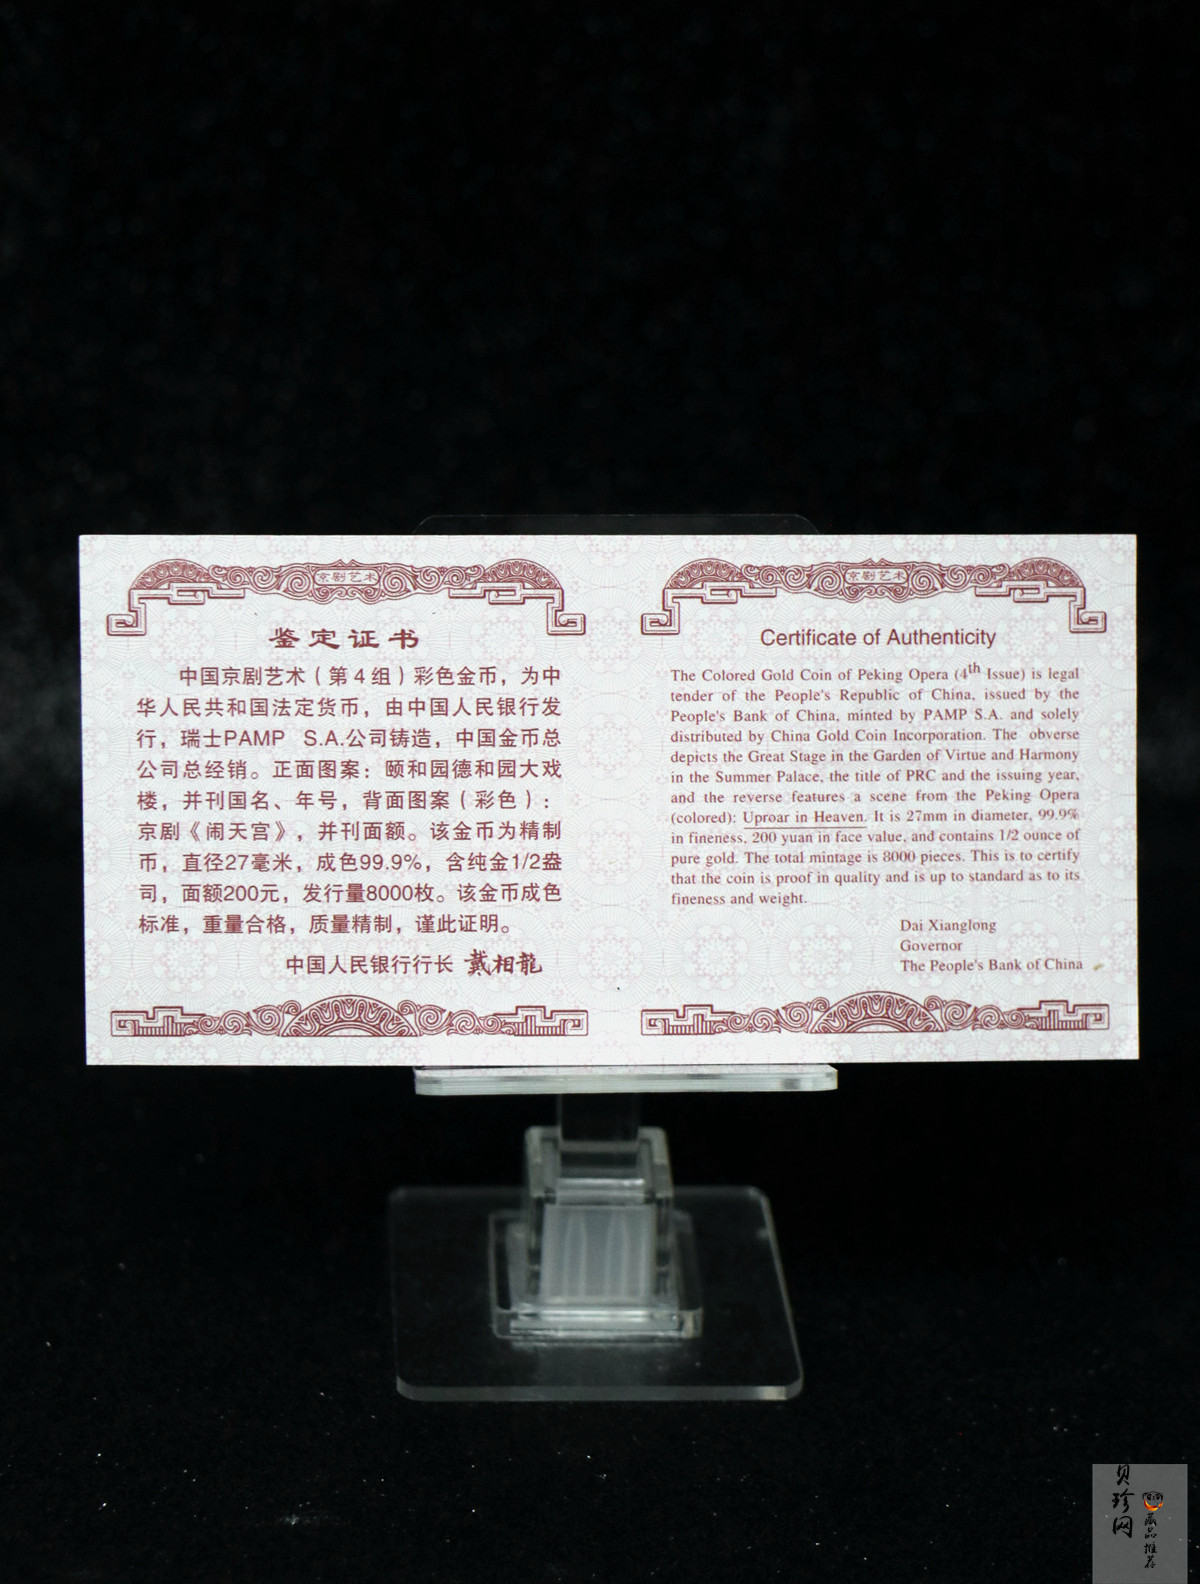 京剧艺术
鉴定证书
中国京剧艺术（第4组）彩色金币，为中
华人民共和国法定货币，由中国人民银行发
行，瑞士PAMP S.A.公司铸造，中国金币总
公司总经销。正面图案：颐和园德和园大戏
楼，并刊国名、年号，背面图案（彩色）：
京剧《闹天宫》，并刊面额。该金币为精制
币，直径27毫米，成色99.9%，含纯金1/2盎
司，面额200元，发行量8000枚。该金币成色
标准，重量合格，质量精制，谨此证明。
中国人民银行行长 戴相龍
京剧艺术
Certificate of Authenticity
The Colored Gold Coin of Peking Opera (4th Issue) is legal
tender of the People's Republic of China, issued by the
People's Bank of China, minted by PAMP S.A. and solely
distributed by China Gold Coin Incorporation. The obverse
depicts the Great Stage in the Garden of Virtue and Harmony
in the Summer Palace, the title of PRC and the issuing year,
and the reverse features a scene from the Peking Opera
(colored): Uproar in Heaven. It is 27mm in diameter, 99.9%
in fineness, 200 yuan in face value, and contains 1/2 ounce of
pure gold. The total mintage is 8000 pieces. This is to certify
that the coin is proof in quality and is up to standard as to its
fineness and weight.
Dai Xianglong
Governor
The People's Bank of China
贝珍网
藏品推荐